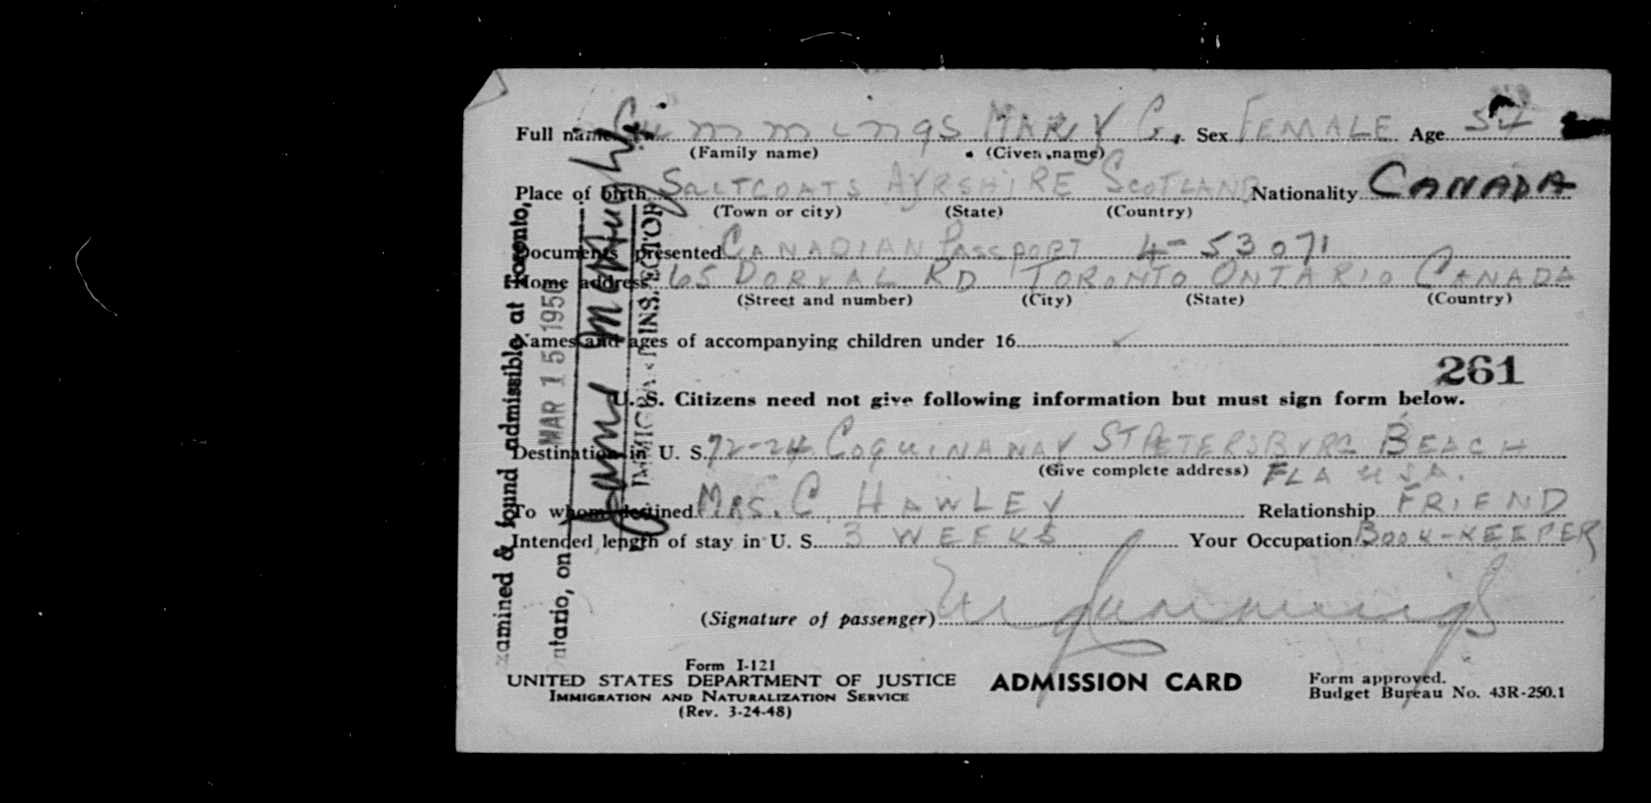 Full name Cummings MARY G. Sex FEMALE Age 54
(Family name) (Given name)
Place of birth SALTCOATS AYRSHIRE SCOTLAND Nationality CANADA
(Town or city) (State) (Country)
Documents presented CANADIAN PASSPORT 4-53071
Home address 65 DORVAL RD TORONTO ONTARIO CANADA
(Street and number) (City) (State) (Country)
Names and ages of accompanying children under 16
261
U. S. Citizens need not give following information but must sign form below.
Destination in U. S. 72-24 COQUINA WAY ST PETERSBURG BEACH
(Give complete address) FLA USA.
To whom destined MRS. C. HAWLEY Relationship FRIEND
Intended length of stay in U. S. 3 WEEKS Your Occupation BOOK-KEEPER
(Signature of passenger) M G Cummings
Form I-121
UNITED STATES DEPARTMENT OF JUSTICE ADMISSION CARD Form approved.
IMMIGRATION AND NATURALIZATION SERVICE Budget Bureau No. 43R-250.1
(Rev. 3-24-48)
xamined & found admissible at Toronto,
ntario, on MAR 15 195
James
IMMIGRANT INSPECTOR